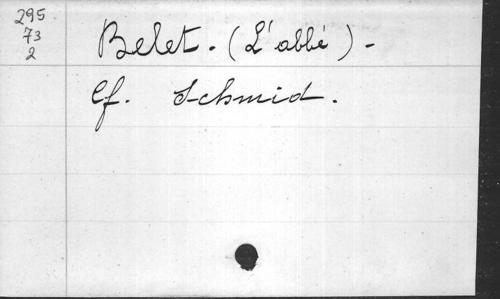 295
73
2
Belet. (L'abbé) -
Cf. Schmid.